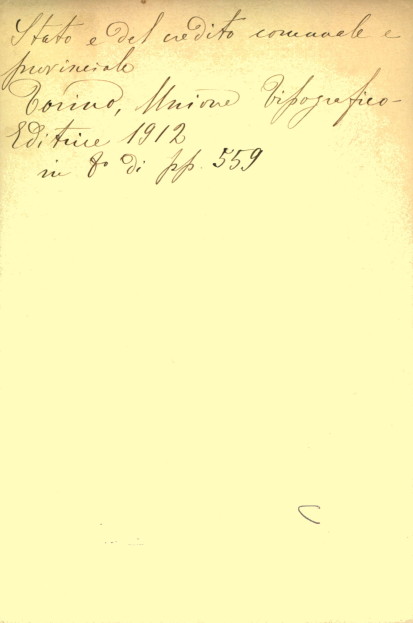 Stato e del credito comunale e
provinciale
Torino, Unione Tipografico-
Editrice 1912
in 8° di pp. 559